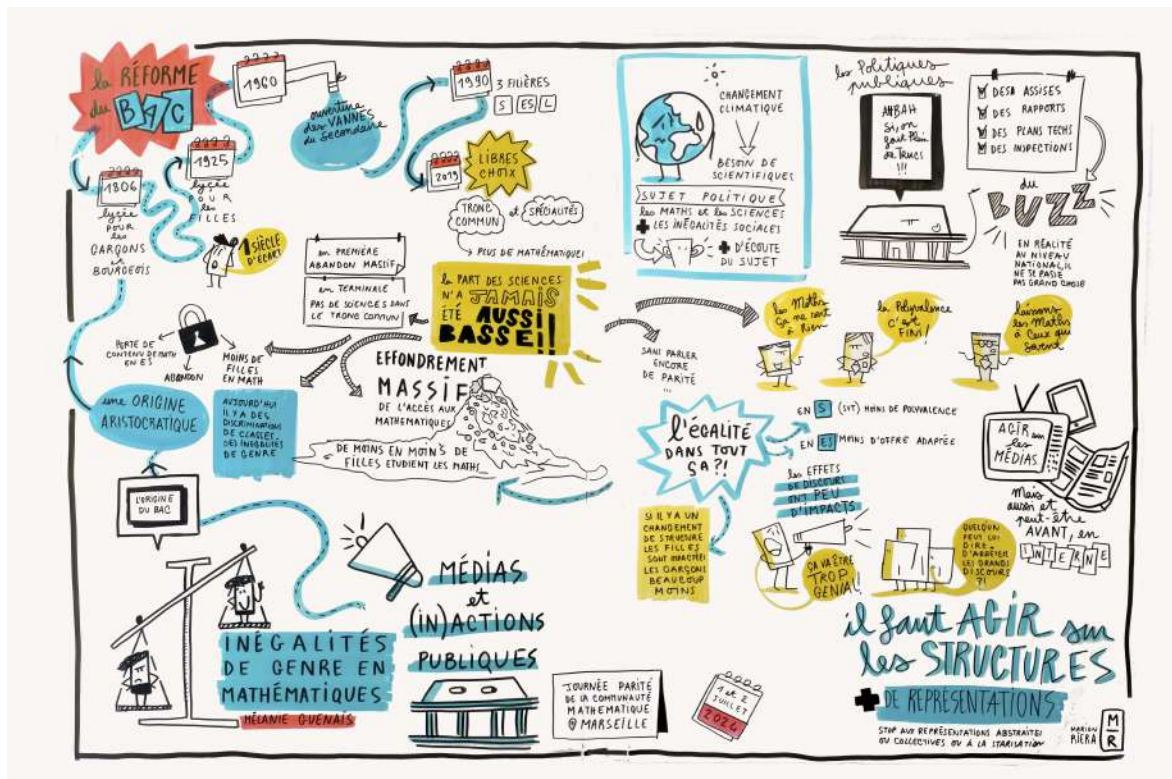 la RÉFORME
du BAC
1960
ouverture
des VANNES
du secondaire
1990
3 FILIÈRES
S ES L
1806
lycée
POUR
les
GARÇONS
et
BOURGEOIS
1925
lycée
POUR
les
FILLES
1 SIÈCLE
D'ÉCART
2019
LIBRES
CHOIX
TRONC
COMMUN
et
SPÉCIALITÉS
PLUS DE MATHÉMATIQUE!
en PREMIÈRE
ABANDON MASSIF
en TERMINALE
PAS DE SCIENCES DANS
LE TRONC COMMUN
la PART DES SCIENCES
N'A JAMAIS
ÉTÉ AUSSI
BASSE!!
PERTE DE
CONTENU DE MATH
EN ES
ABANDON
MOINS DE
FILLES
EN MATH
une ORIGINE
ARISTOCRATIQUE
AUJOURD'HUI
IL Y A DES
DISCRIMINATIONS
DE CLASSE,
DES INÉGALITÉS
DE GENRE
EFFONDREMENT
MASSIF
DE L'ACCÈS AUX
MATHÉMATIQUES
DE MOINS EN MOINS DE
FILLES ETUDIENT LES MATHS
L'ORIGINE
DU BAC
INÉGALITÉS
DE GENRE EN
MATHÉMATIQUES
MÉLANIE GUENAIS
MÉDIAS
et
(IN)ACTIONS
PUBLIQUES
JOURNÉE PARITÉ
DE LA COMMUNAUTÉ
MATHEMATIQUE
@ MARSEILLE
1 et 2
JUILLET
2024
CHANGEMENT
CLIMATIQUE
BESOIN DE
SCIENTIFIQUES
SUJET POLITIQUE
les MATHS et les SCIENCES
+ LES INÉGALITÉS SOCIALES
+ D'ÉCOUTE
DU SUJET
les Politiques
publiques
AHBAH
Si, on
fait Plein
de Trucs
!!!
DES ASSISES
DES RAPPORTS
DES PLANS TECHS
DES INSPECTIONS
du
BUZZ
EN RÉALITÉ
AU NIVEAU
NATIONAL, IL
NE SE PASSE
PAS GRAND CHOSE
les Maths
Ça ne sert
à Rien
la Polyvalence
c'est
FINI!
laissons
les Maths
à Ceux qui
Savent
SANS PARLER
ENCORE
DE PARITÉ
...
l'égalité
DANS TOUT
ÇA?!
EN S (SVT) MOINS DE POLYVALENCE
EN ES MOINS D'OFFRE ADAPTÉE
les EFFETS
DE DISCOURS
ONT PEU
D'IMPACTS
SI IL Y A UN
CHANGEMENT
DE STRUCTURE
LES FILLES
SONT IMPACTÉES
LES GARÇONS
BEAUCOUP
MOINS
ÇA VA ÊTRE
TROP
GENIAL!
QUELQU'UN
PEUT LUI
DIRE
D'ARRÊTER
LES GRANDS
DISCOURS
?!
AGIR sur
les
MÉDIAS
Mais
aussi et
peut-être
AVANT, en
INTERNE
il faut AGIR sur
les STRUCTURES
+ DE REPRÉSENTATIONS
STOP AUX REPRÉSENTATIONS ABSTRAITES
OU COLLECTIVES OU À LA STARISATION
MARION
RIERA
M
R